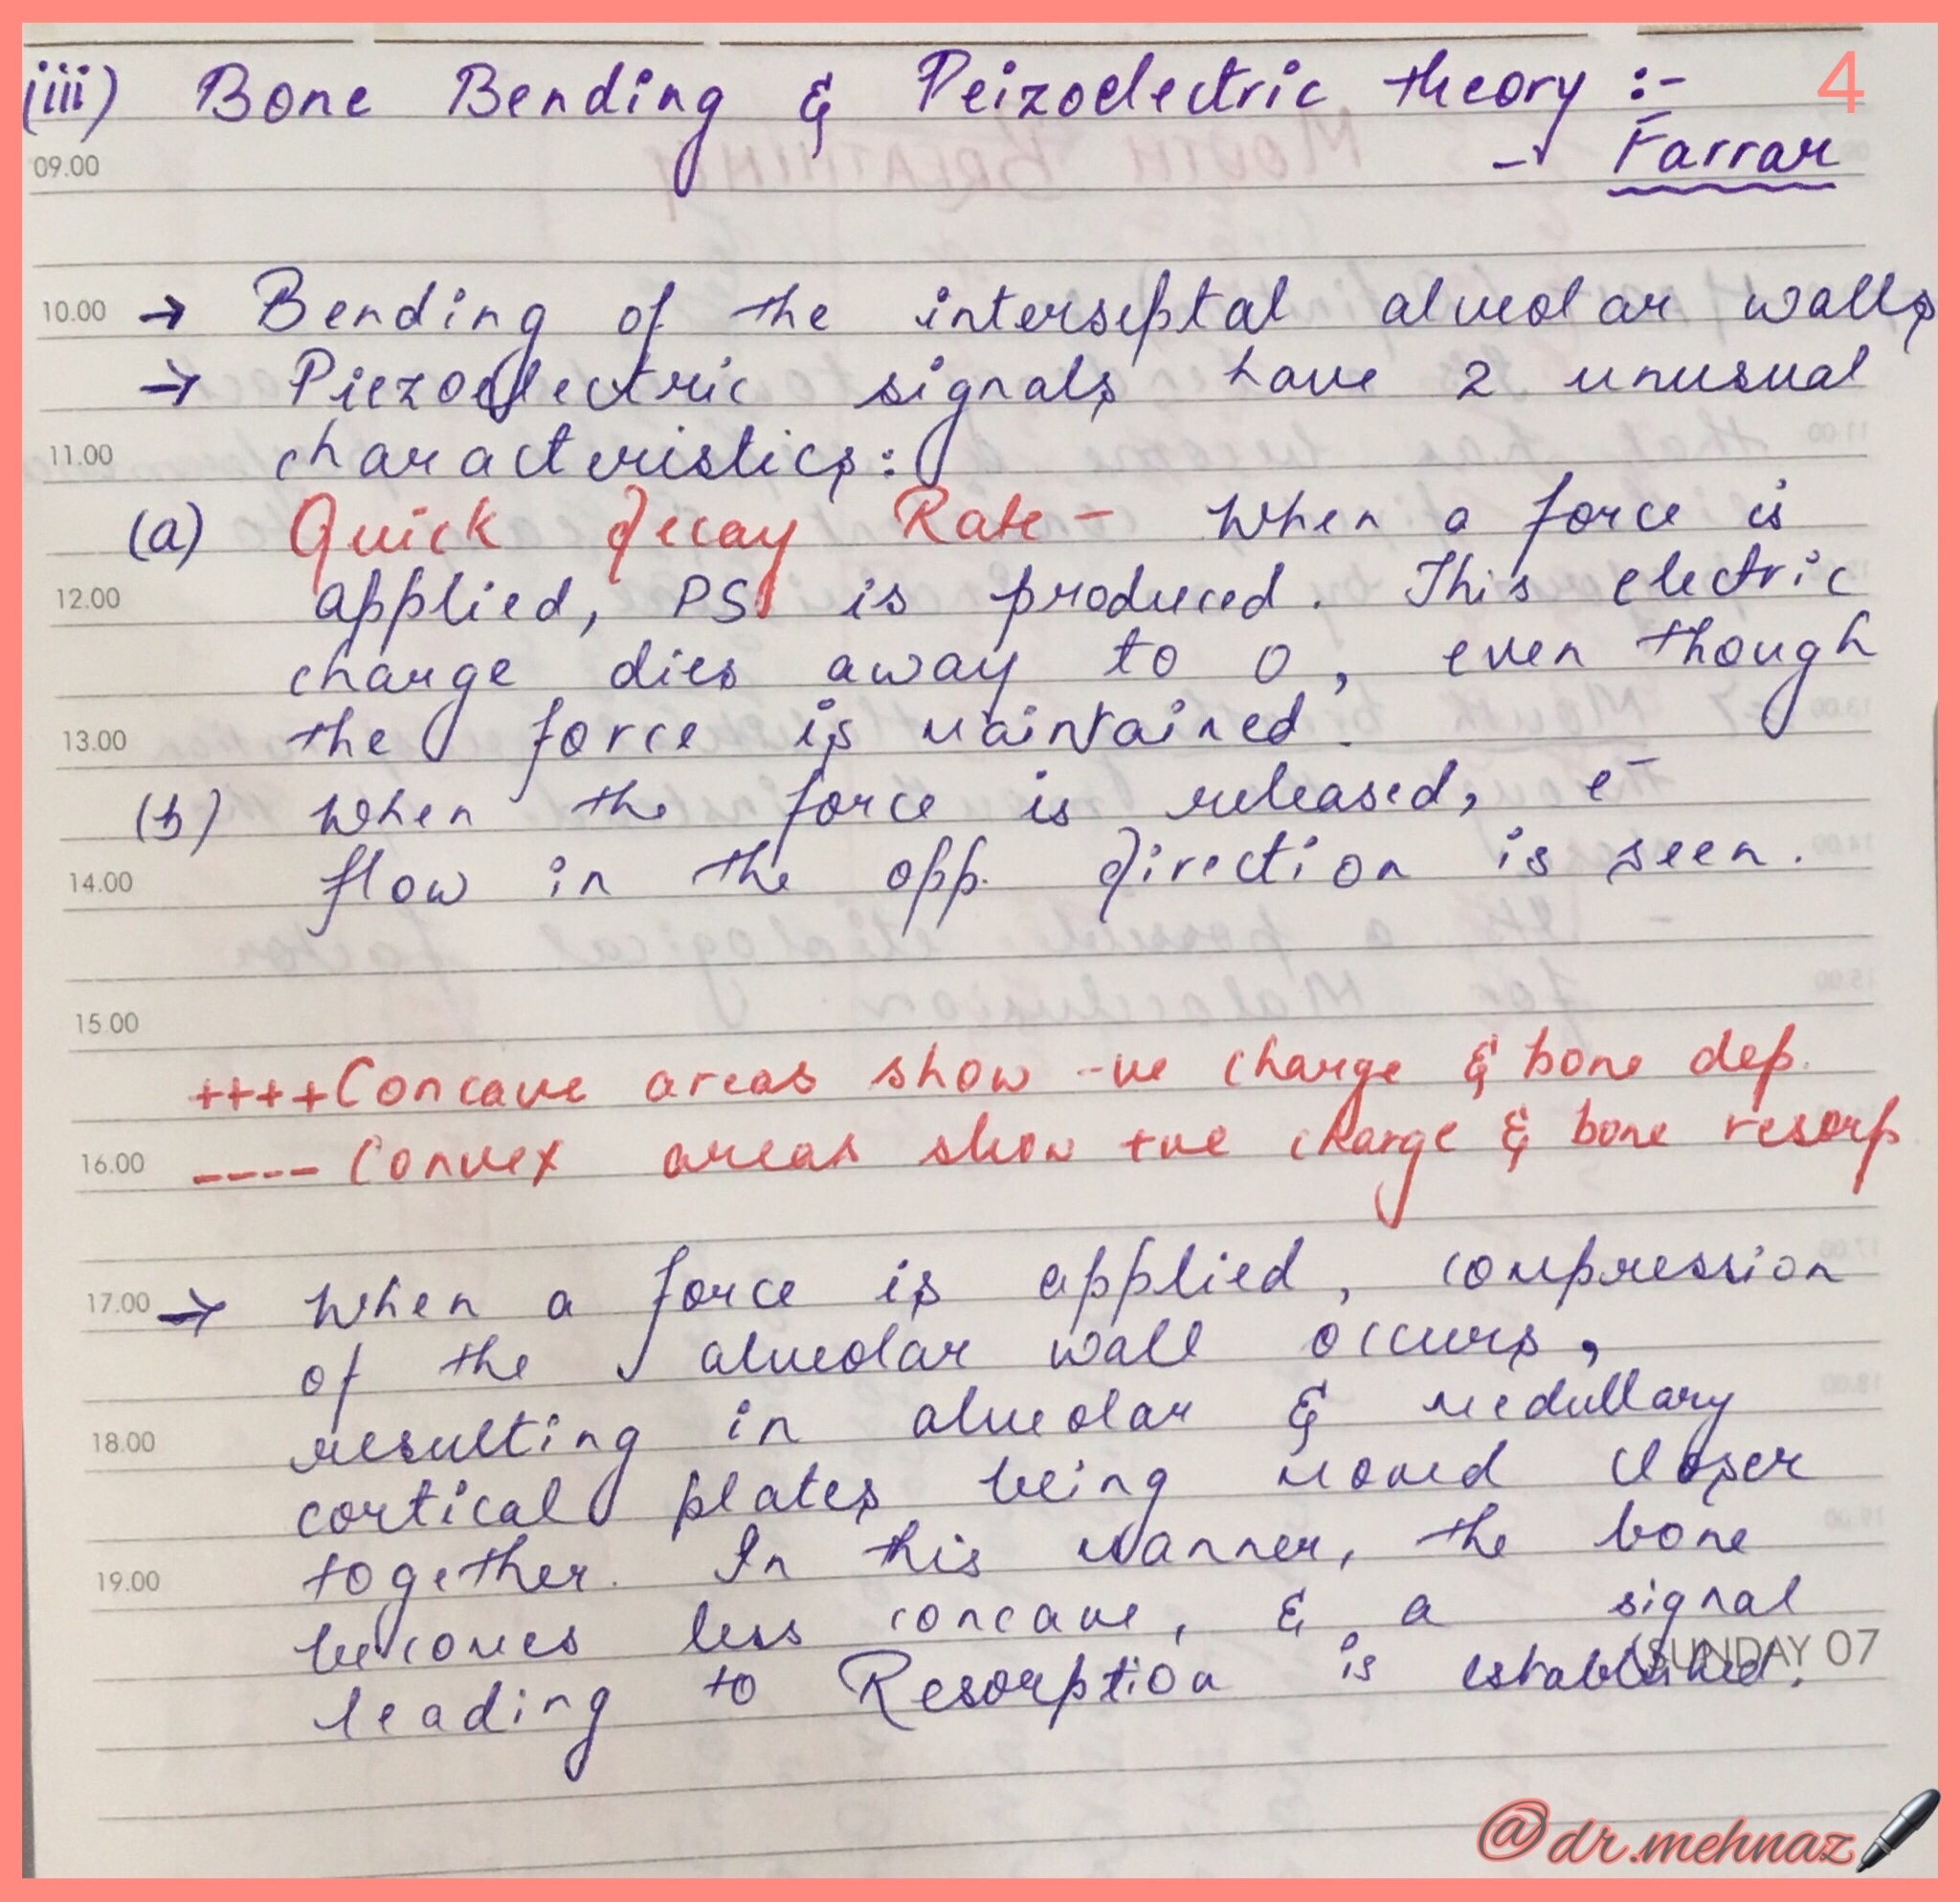 (iii) Bone Bending & Peizoelectric theory :- 4
09.00 → Farrar
10.00 → Bending of the interseptal alveolar walls
→ Piezoelectric signals have 2 unusual
11.00 characteristics:
(a) Quick decay Rate - When a force is
12.00 applied, PS is produced. This electric
charge dies away to 0, even though
13.00 the force is maintained.
(b) When the force is released, e⁻
14.00 flow in the opp. direction is seen.
15.00
++++Concave areas show -ve charge & bone dep.
16.00 ---- Convex areas show +ve charge & bone resorp
17.00 → When a force is applied, compression
of the alveolar wall occurs,
18.00 resulting in alveolar & medullary
cortical plates being moved closer
19.00 together. In this manner, the bone
becomes less concave, & a signal
SUNDAY 07
leading to Resorption is established.
@dr.mehnaz